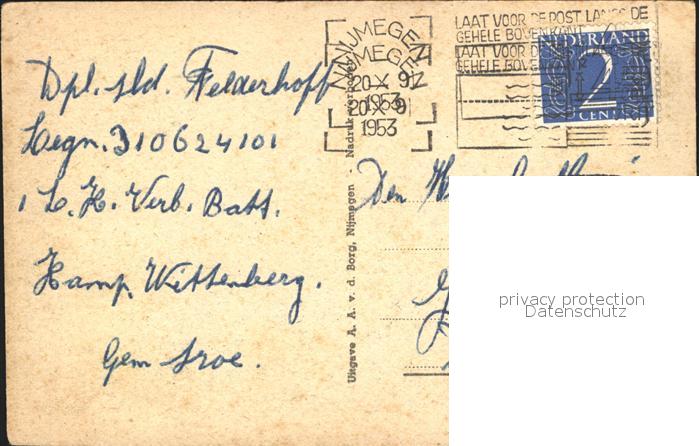 Dpl. sld. Felderhoff
Legn. 310624101
1 L.K. Verb. Batt.
Kamp Wittenberg.
Gem
Den
NIJMEGEN
NIJMEGEN
20-X 9
1953
20-X 9
1953
LAAT VOOR DE POST LANGS DE
GEHELE BOVENKANT
LAAT VOOR DE
GEHELE BOVENKANT
NEDERLAND
2
CENT
Uitgave A. A. v. d. Borg, Nijmegen - Nadruk verboden
privacy protection
Datenschutz